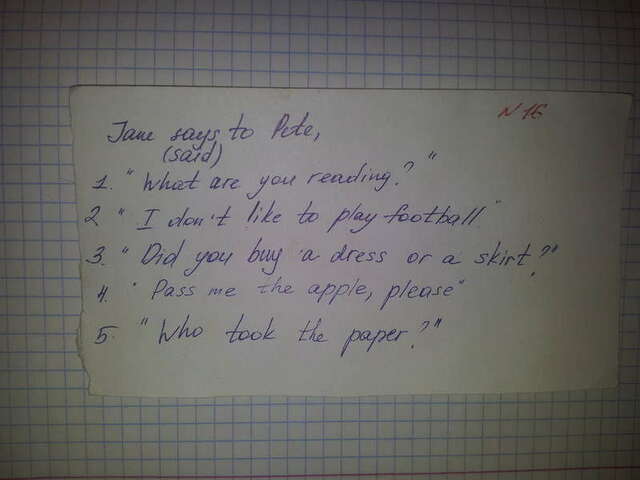 N 16
Jane says to Pete,
(said)
1. "What are you reading?"
2 "I don't like to play football"
3. "Did you buy a dress or a skirt?"
4. "Pass me the apple, please"
5. "Who took the paper?"